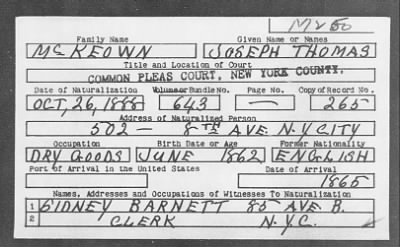 M250
Family Name Given Name or Names
McKEOWN JOSEPH THOMAS
Title and Location of Court
COMMON PLEAS COURT, NEW YORK COUNTY.
Date of Naturalization Volume or Bundle No. Page No. Copy of Record No.
OCT, 26, 1888 643 — 265
Address of Naturalized Person
502 — 8TH AVE. N.Y. CITY
Occupation Birth Date or Age Former Nationality
DRY GOODS JUNE 1862 ENGLISH
Port of Arrival in the United States Date of Arrival
1865
Names, Addresses and Occupations of Witnesses To Naturalization
1 SIDNEY BARNETT 85 AVE. B.
2 CLERK N.Y.C.